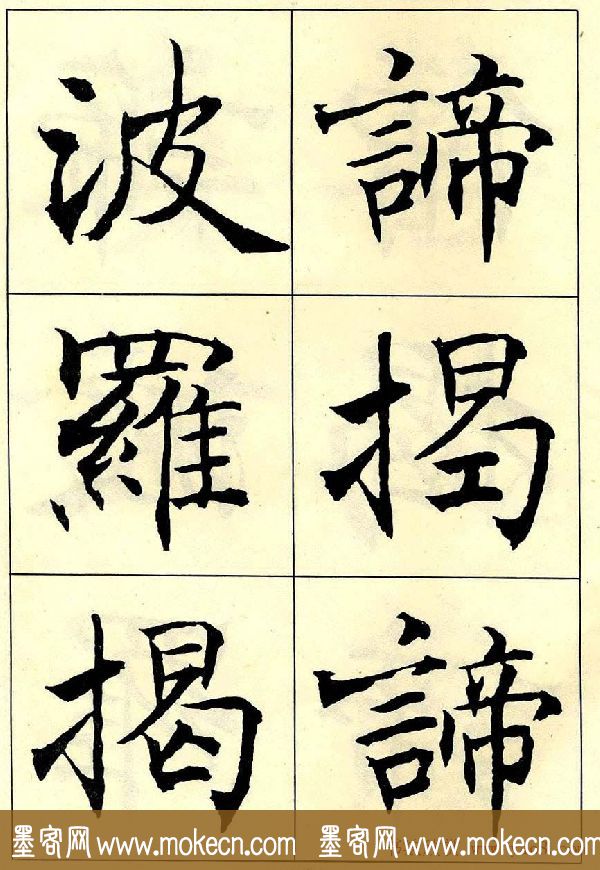 諦揭諦
波羅揭
墨客网 www.mokecn.com 墨客网 www.mokecn.com